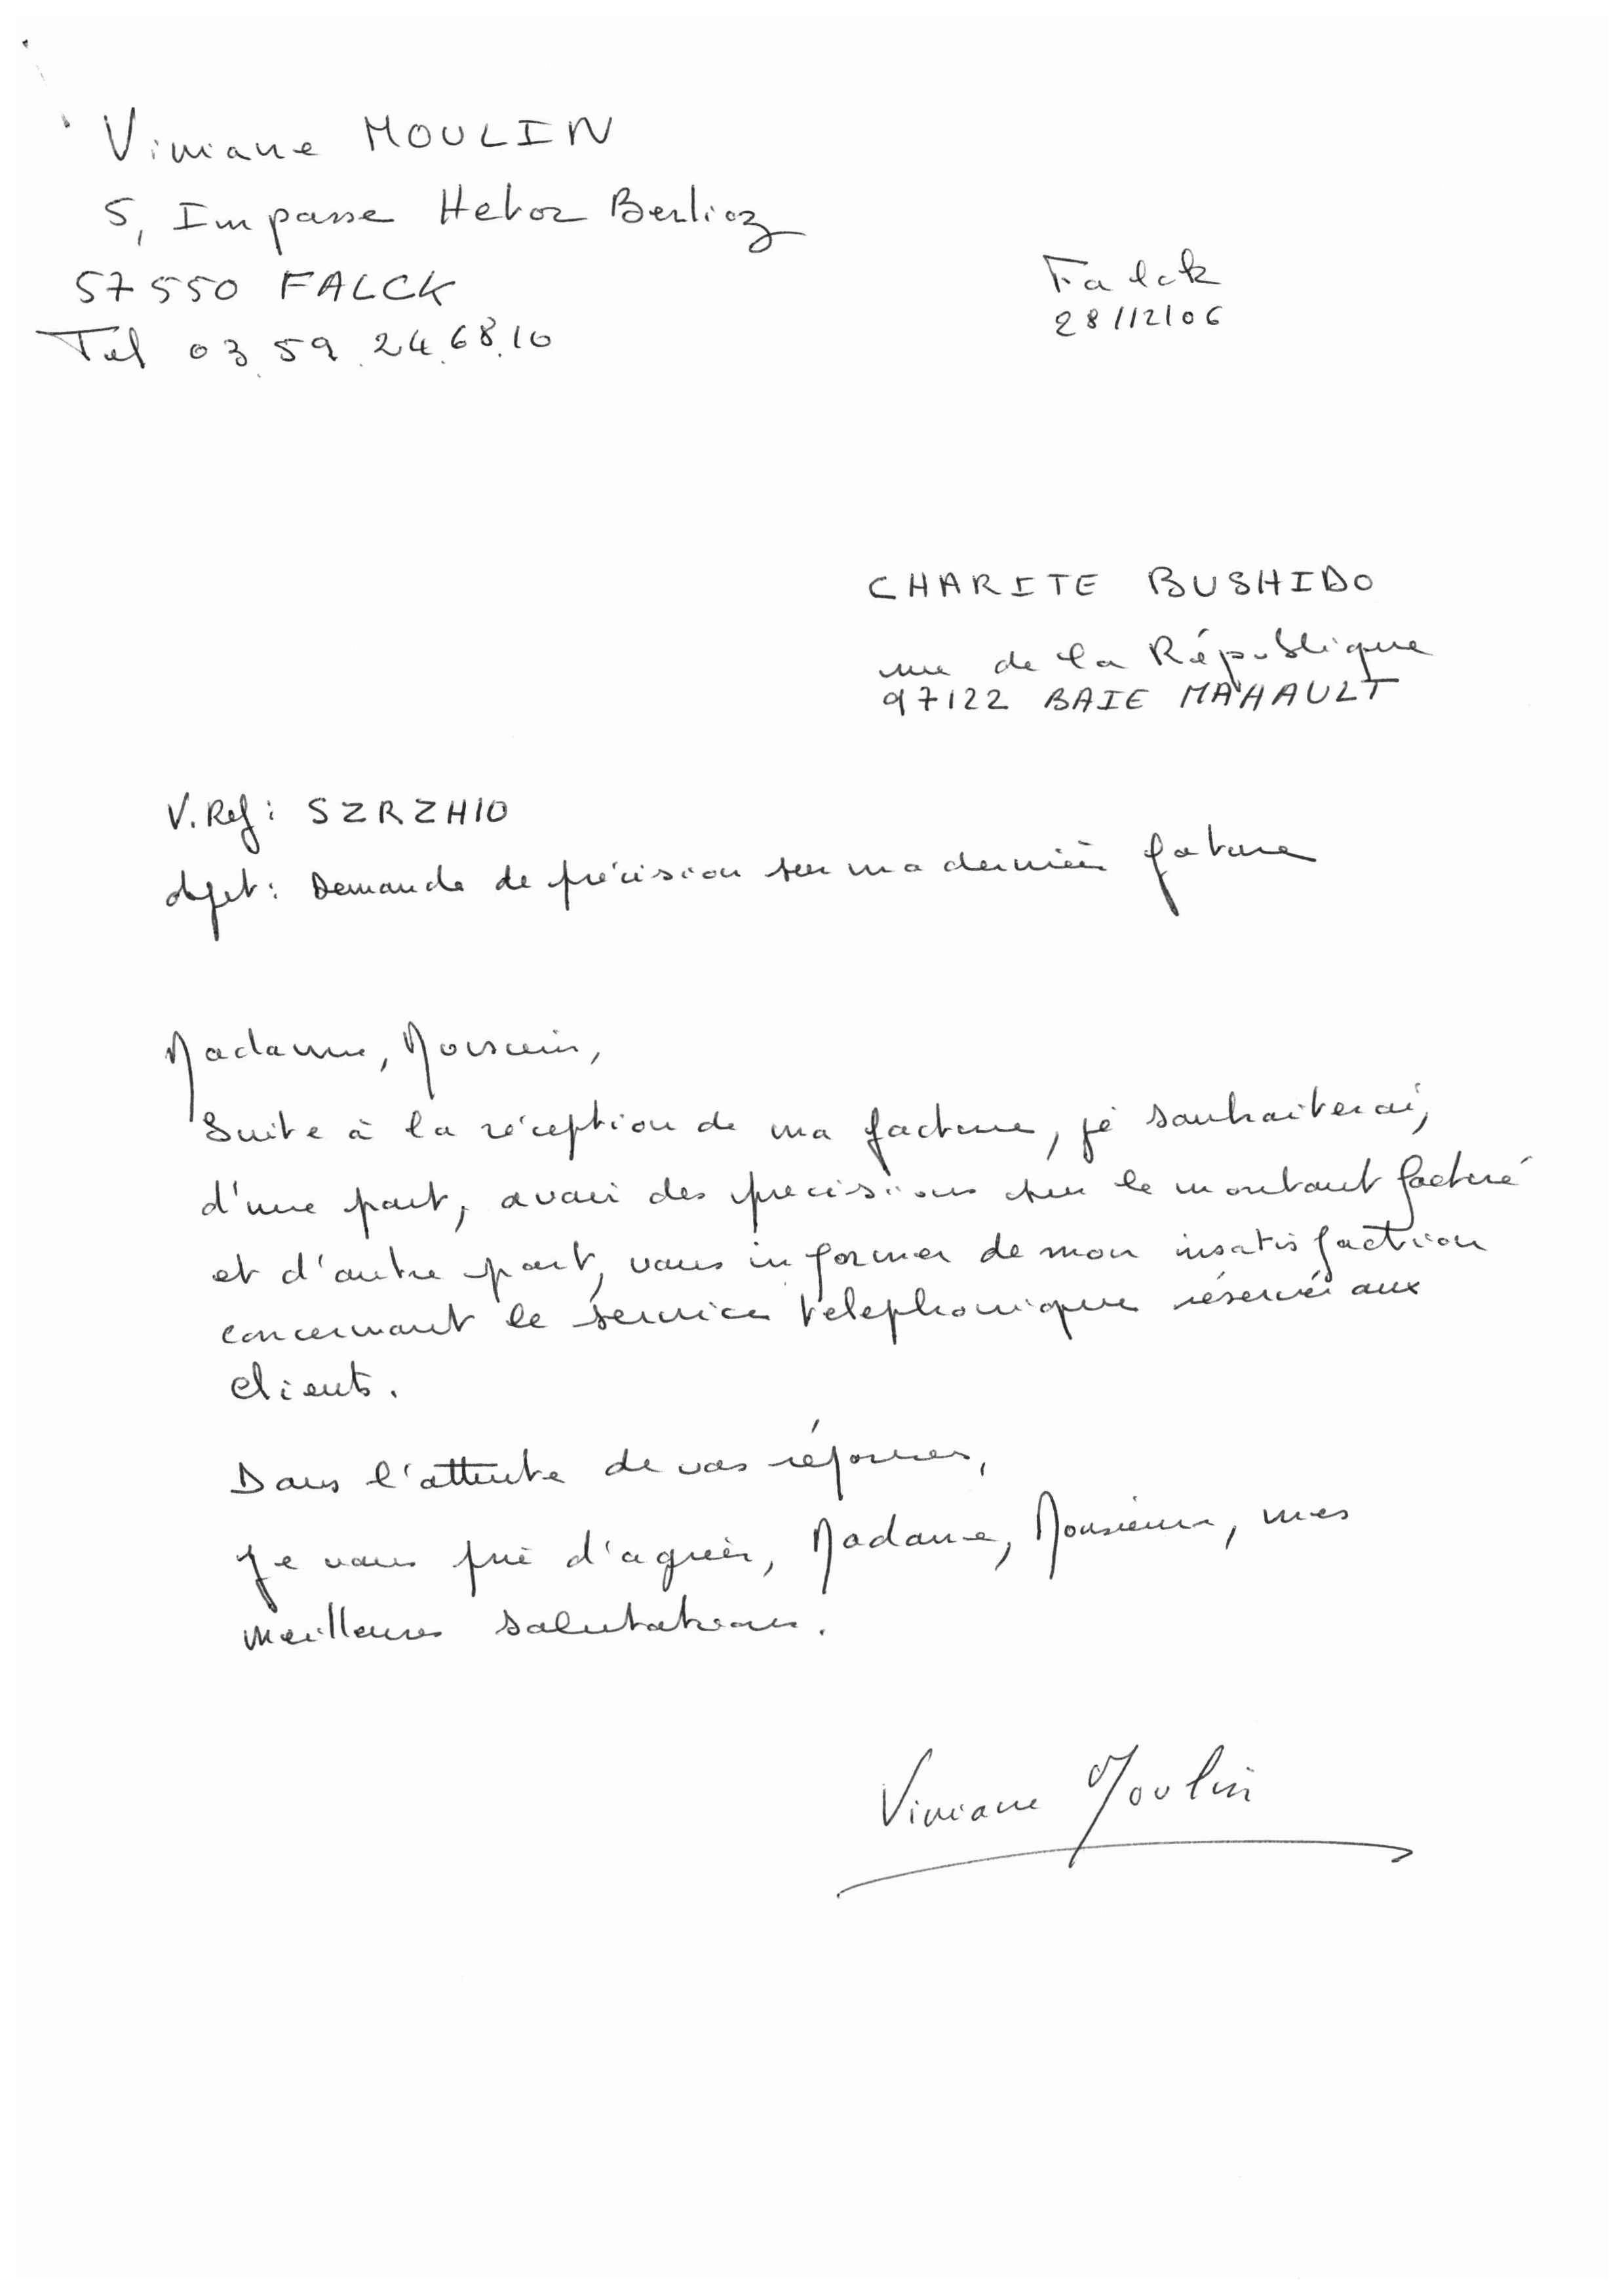 Viviane MOULIN
5, Impasse Hetor Berlioz
57550 FALCK
Tel 03.59.24.68.10
Falck
28/12/06
CHARITE BUSHIDO
rue de la République
97122 BAIE MAHAULT
V.Ref: SZRZH10
Objet: Demande de précision sur ma dernière fature
Madame, Monsieur,
Suite à la réception de ma facture, je souhaiterai,
d'une part, avoir des precisions sur le montant facturé
et d'autre part, vous informer de mon insatisfaction
concernant le service telephonique réservé aux
clients.
Dans l'attente de vos réponses,
Je vous prie d'agréer, Madame, Monsieur, mes
meilleures salutations.
Viviane Moulin